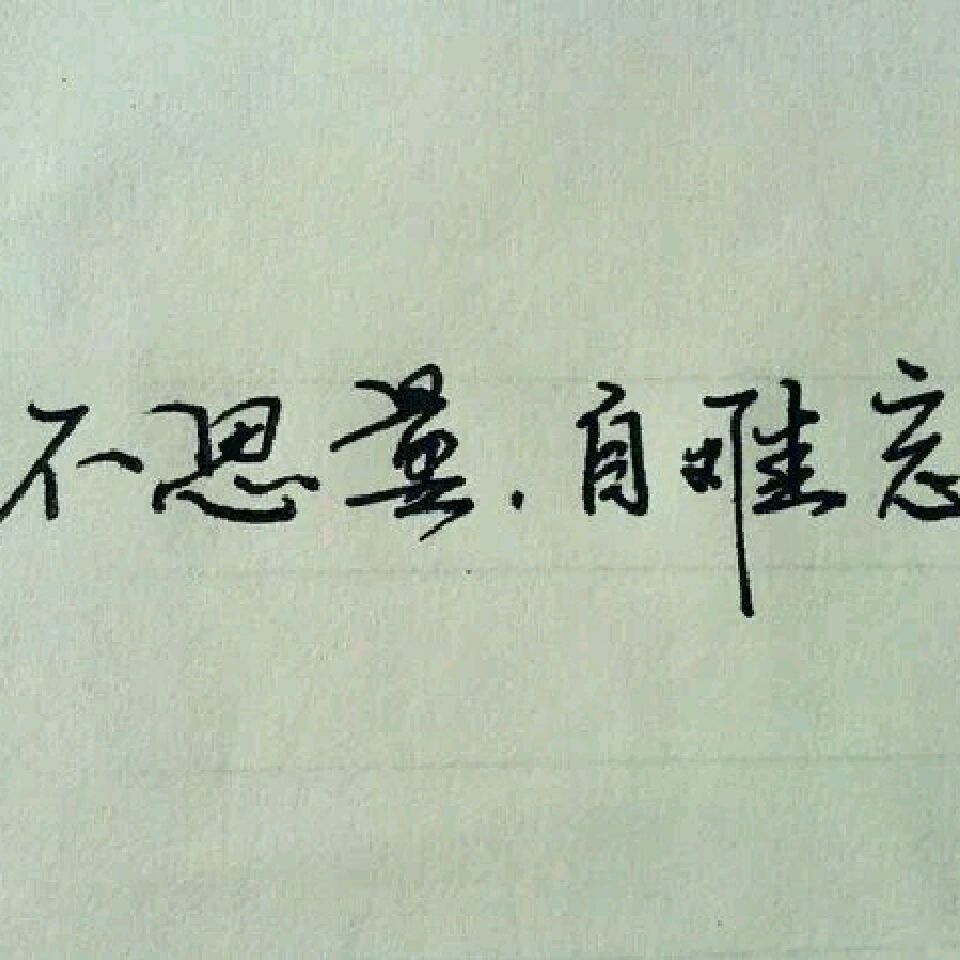 不思量.自难忘